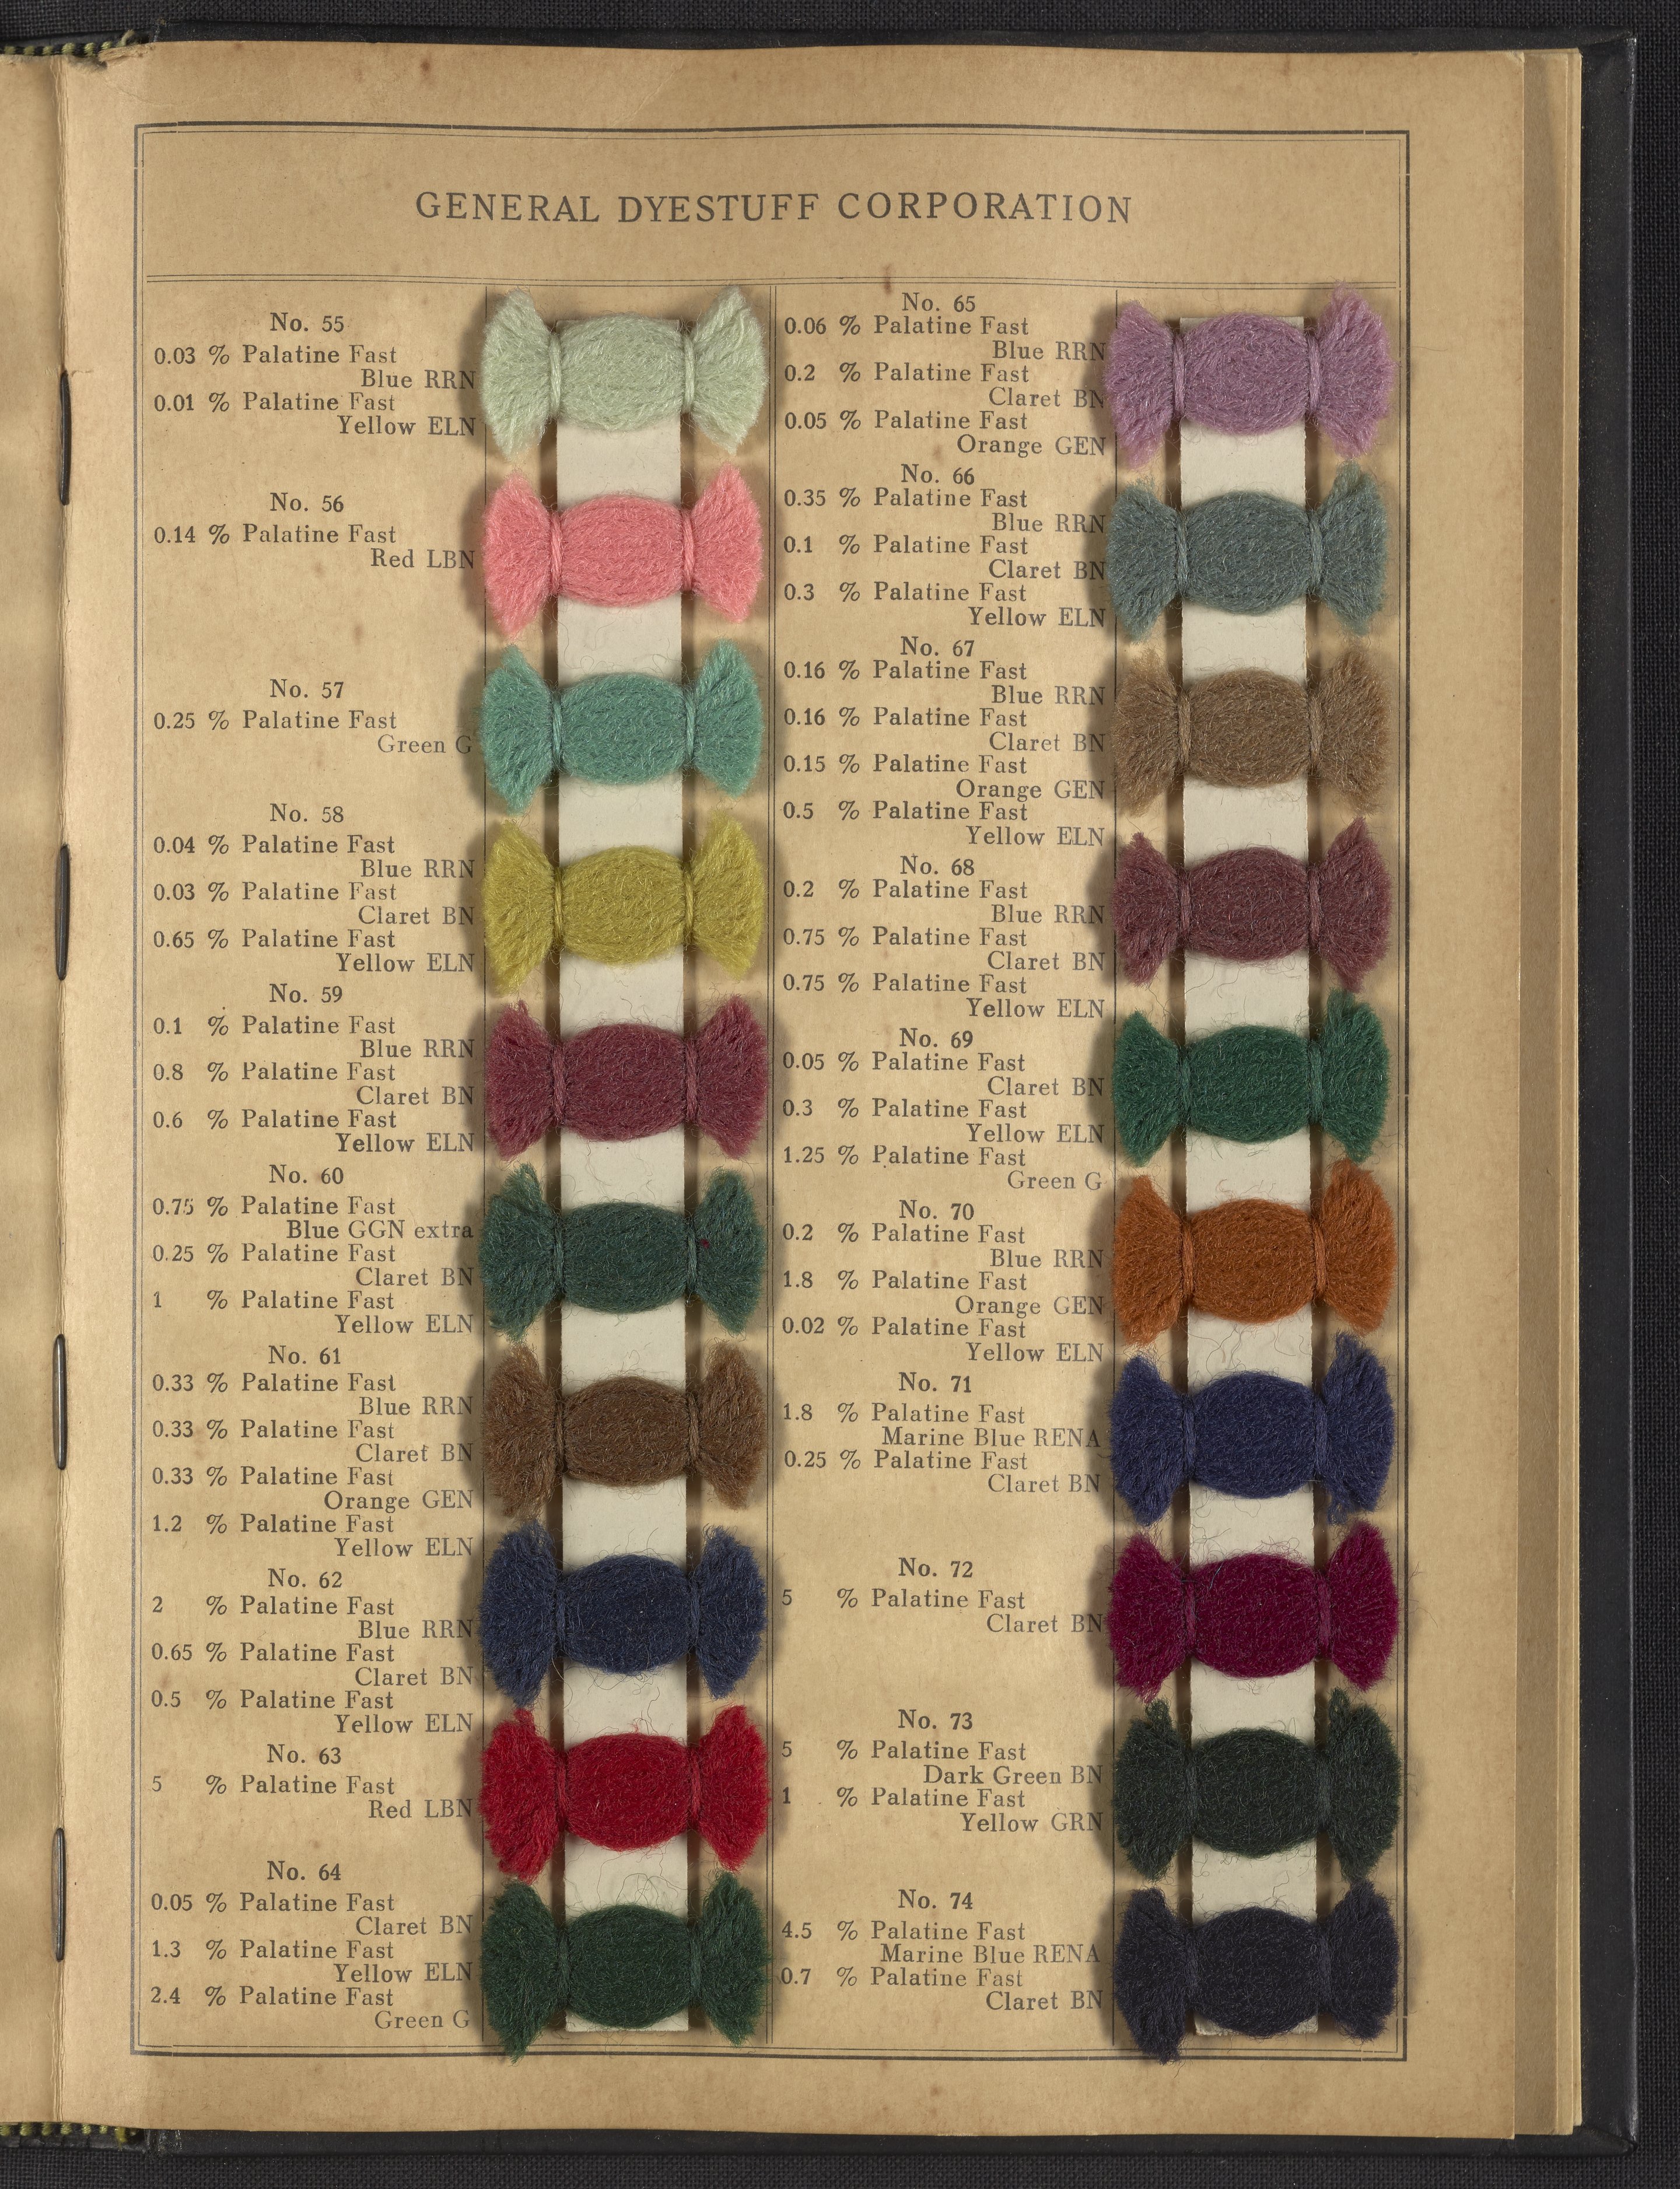 GENERAL DYESTUFF CORPORATION
No. 55
0.03 % Palatine Fast
Blue RRN
0.01 % Palatine Fast
Yellow ELN
No. 56
0.14 % Palatine Fast
Red LBN
No. 57
0.25 % Palatine Fast
Green G
No. 58
0.04 % Palatine Fast
Blue RRN
0.03 % Palatine Fast
Claret BN
0.65 % Palatine Fast
Yellow ELN
No. 59
0.1 % Palatine Fast
Blue RRN
0.8 % Palatine Fast
Claret BN
0.6 % Palatine Fast
Yellow ELN
No. 60
0.75 % Palatine Fast
Blue GGN extra
0.25 % Palatine Fast
Claret BN
1 % Palatine Fast
Yellow ELN
No. 61
0.33 % Palatine Fast
Blue RRN
0.33 % Palatine Fast
Claret BN
0.33 % Palatine Fast
Orange GEN
1.2 % Palatine Fast
Yellow ELN
No. 62
2 % Palatine Fast
Blue RRN
0.65 % Palatine Fast
Claret BN
0.5 % Palatine Fast
Yellow ELN
No. 63
5 % Palatine Fast
Red LBN
No. 64
0.05 % Palatine Fast
Claret BN
1.3 % Palatine Fast
Yellow ELN
2.4 % Palatine Fast
Green G
No. 65
0.06 % Palatine Fast
Blue RRN
0.2 % Palatine Fast
Claret BN
0.05 % Palatine Fast
Orange GEN
No. 66
0.35 % Palatine Fast
Blue RRN
0.1 % Palatine Fast
Claret BN
0.3 % Palatine Fast
Yellow ELN
No. 67
0.16 % Palatine Fast
Blue RRN
0.16 % Palatine Fast
Claret BN
0.15 % Palatine Fast
Orange GEN
0.5 % Palatine Fast
Yellow ELN
No. 68
0.2 % Palatine Fast
Blue RRN
0.75 % Palatine Fast
Claret BN
0.75 % Palatine Fast
Yellow ELN
No. 69
0.05 % Palatine Fast
Claret BN
0.3 % Palatine Fast
Yellow ELN
1.25 % Palatine Fast
Green G
No. 70
0.2 % Palatine Fast
Blue RRN
1.8 % Palatine Fast
Orange GEN
0.02 % Palatine Fast
Yellow ELN
No. 71
1.8 % Palatine Fast
Marine Blue RENA
0.25 % Palatine Fast
Claret BN
No. 72
5 % Palatine Fast
Claret BN
No. 73
5 % Palatine Fast
Dark Green BN
1 % Palatine Fast
Yellow GRN
No. 74
4.5 % Palatine Fast
Marine Blue RENA
0.7 % Palatine Fast
Claret BN